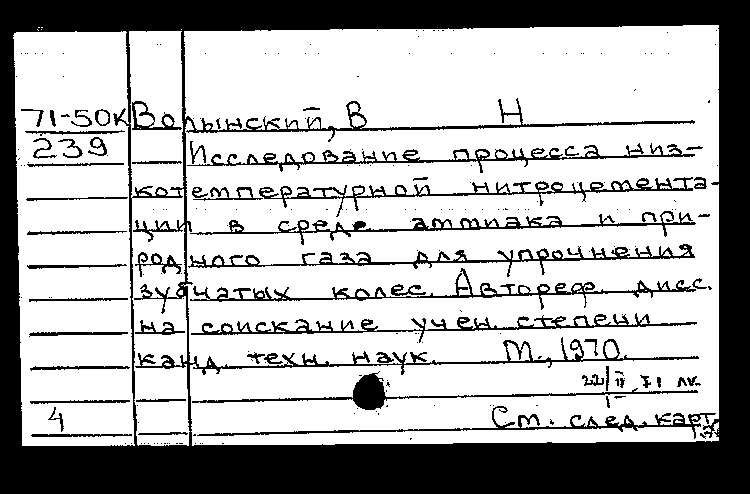 71-50К Волынский, В Н
239 Исследование процесса низ-
котемпературной нитроцемента-
ции в среде аммиака и при-
родного газа для упрочнения
зубчатых колес. Автореф. дисс.
на соискание учен. степени
канд. техн. наук. М., 1970.
22/II 71 лк.
4 См. след. карт.